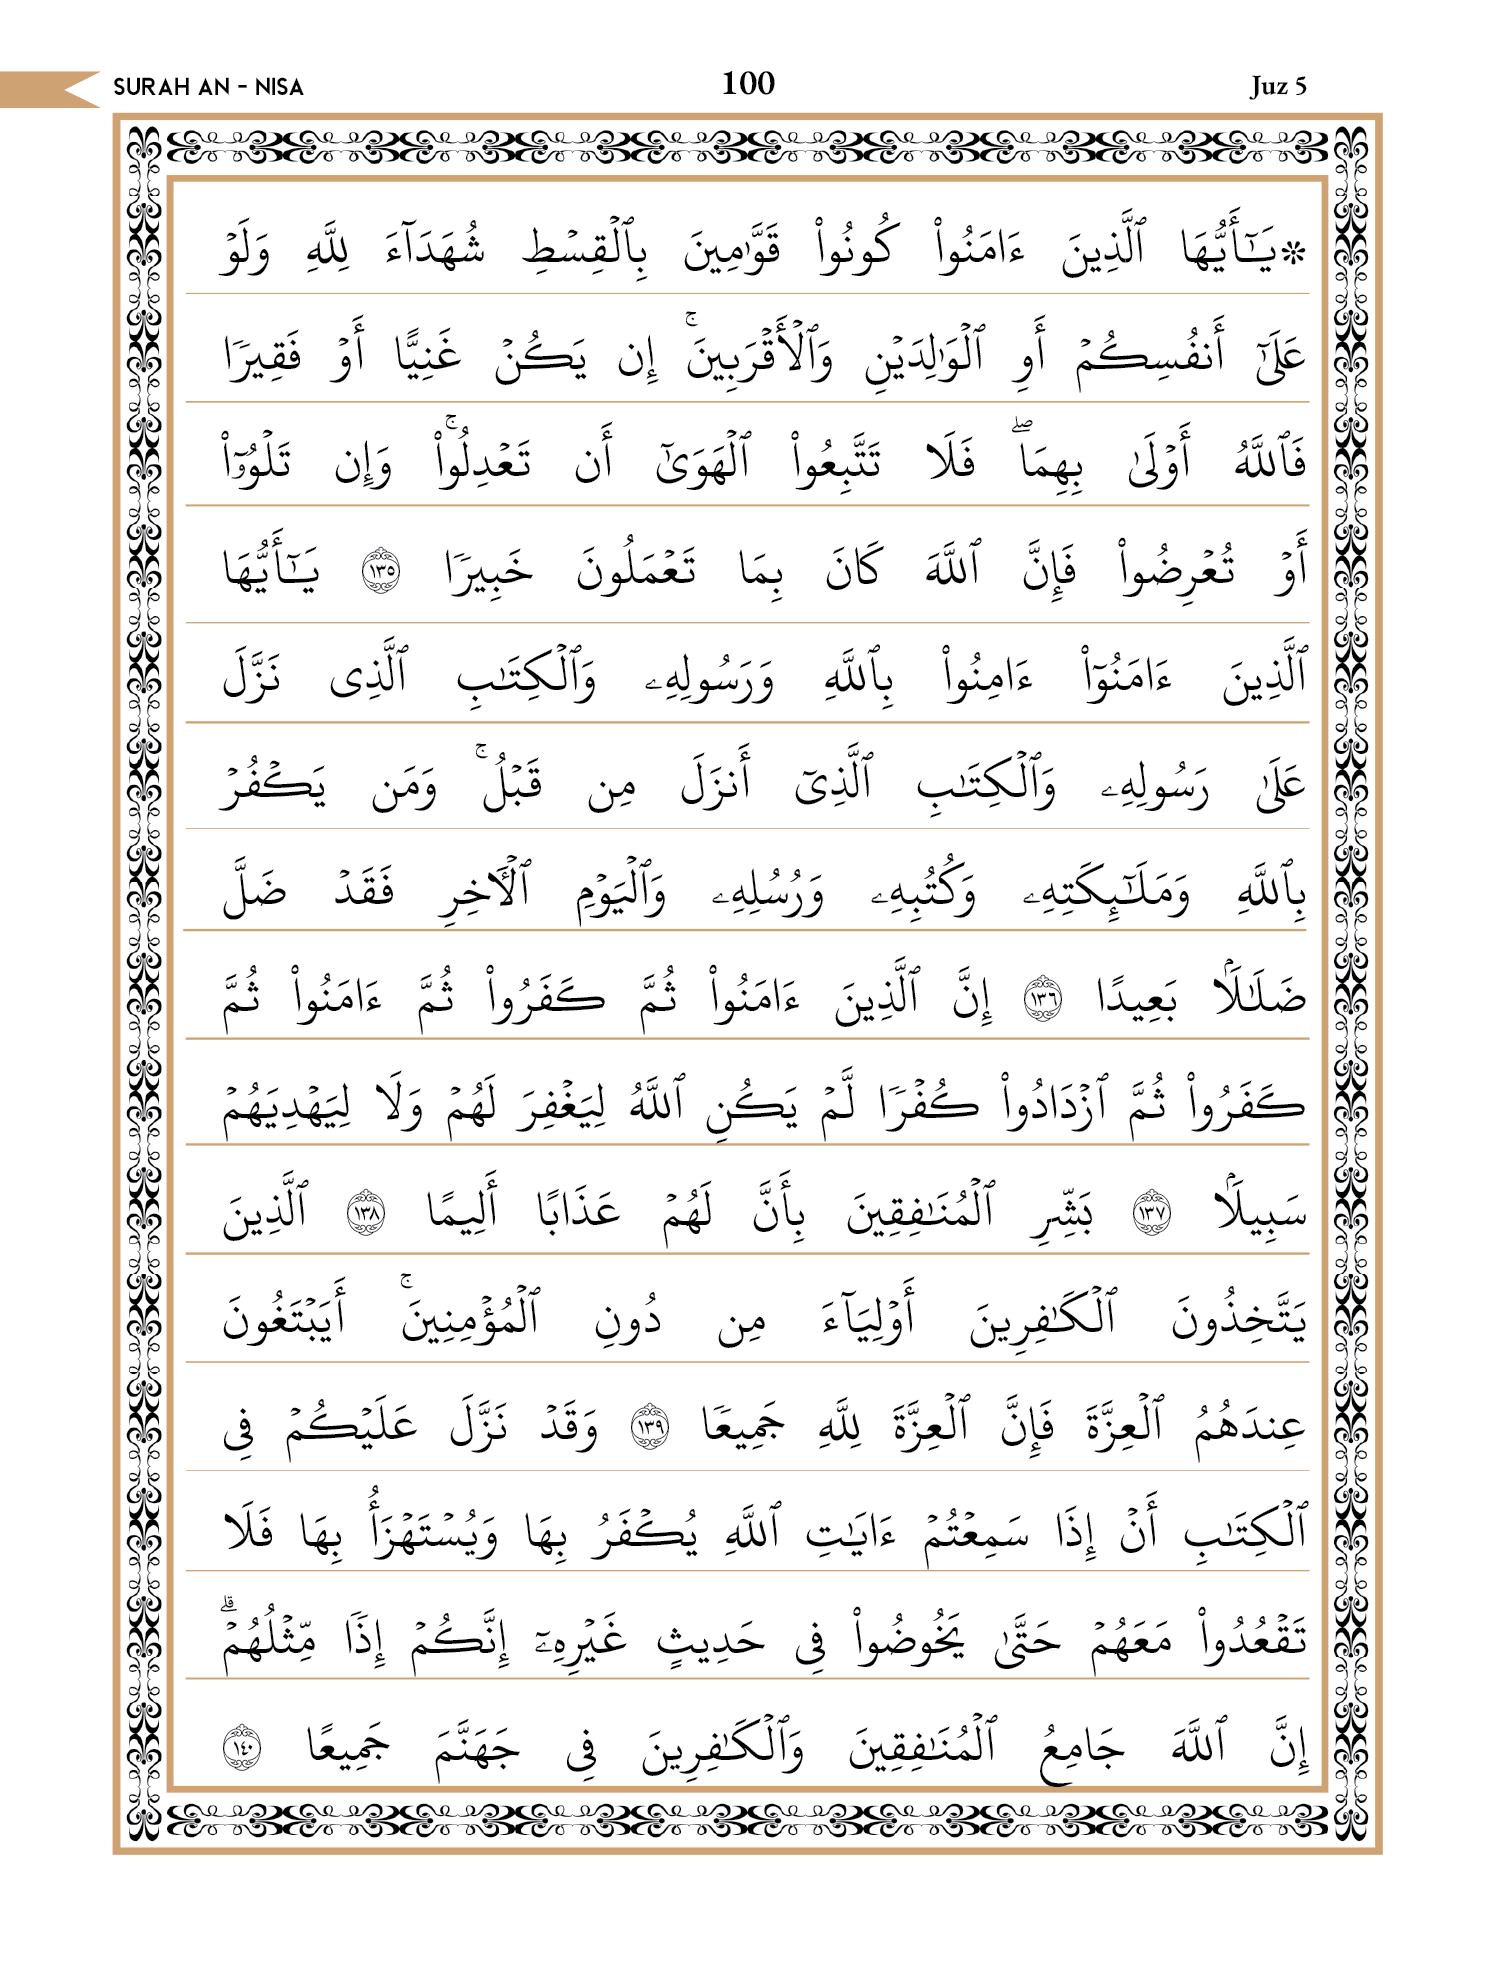 SURAH AN - NISA 100 Juz 5
۞يَـٰٓأَيُّهَا ٱلَّذِينَ ءَامَنُواْ كُونُواْ قَوَّٰمِينَ بِٱلْقِسْطِ شُهَدَآءَ لِلَّهِ وَلَوْ
عَلَىٰٓ أَنفُسِكُمْ أَوِ ٱلْوَٰلِدَيْنِ وَٱلْأَقْرَبِينَۚ إِن يَكُنْ غَنِيًّا أَوْ فَقِيرًا
فَٱللَّهُ أَوْلَىٰ بِهِمَاۖ فَلَا تَتَّبِعُواْ ٱلْهَوَىٰٓ أَن تَعْدِلُواْۚ وَإِن تَلْوُۥٓاْ
أَوْ تُعْرِضُواْ فَإِنَّ ٱللَّهَ كَانَ بِمَا تَعْمَلُونَ خَبِيرًا ١٣٥ يَـٰٓأَيُّهَا
ٱلَّذِينَ ءَامَنُوٓاْ ءَامِنُواْ بِٱللَّهِ وَرَسُولِهِۦ وَٱلْكِتَـٰبِ ٱلَّذِى نَزَّلَ
عَلَىٰ رَسُولِهِۦ وَٱلْكِتَـٰبِ ٱلَّذِىٓ أَنزَلَ مِن قَبْلُۚ وَمَن يَكْفُرْ
بِٱللَّهِ وَمَلَـٰٓئِكَتِهِۦ وَكُتُبِهِۦ وَرُسُلِهِۦ وَٱلْيَوْمِ ٱلْأَخِرِ فَقَدْ ضَلَّ
ضَلَـٰلًا بَعِيدًا ١٣٦ إِنَّ ٱلَّذِينَ ءَامَنُواْ ثُمَّ كَفَرُواْ ثُمَّ ءَامَنُواْ ثُمَّ
كَفَرُواْ ثُمَّ ٱزْدَادُواْ كُفْرًا لَّمْ يَكُنِ ٱللَّهُ لِيَغْفِرَ لَهُمْ وَلَا لِيَهْدِيَهُمْ
سَبِيلًا ١٣٧ بَشِّرِ ٱلْمُنَـٰفِقِينَ بِأَنَّ لَهُمْ عَذَابًا أَلِيمًا ١٣٨ ٱلَّذِينَ
يَتَّخِذُونَ ٱلْكَـٰفِرِينَ أَوْلِيَآءَ مِن دُونِ ٱلْمُؤْمِنِينَۚ أَيَبْتَغُونَ
عِندَهُمُ ٱلْعِزَّةَ فَإِنَّ ٱلْعِزَّةَ لِلَّهِ جَمِيعًا ١٣٩ وَقَدْ نَزَّلَ عَلَيْكُمْ فِى
ٱلْكِتَـٰبِ أَنْ إِذَا سَمِعْتُمْ ءَايَـٰتِ ٱللَّهِ يُكْفَرُ بِهَا وَيُسْتَهْزَأُ بِهَا فَلَا
تَقْعُدُواْ مَعَهُمْ حَتَّىٰ يَخُوضُواْ فِى حَدِيثٍ غَيْرِهِۦٓ إِنَّكُمْ إِذًا مِّثْلُهُمْۗ
إِنَّ ٱللَّهَ جَامِعُ ٱلْمُنَـٰفِقِينَ وَٱلْكَـٰفِرِينَ فِى جَهَنَّمَ جَمِيعًا ١٤٠